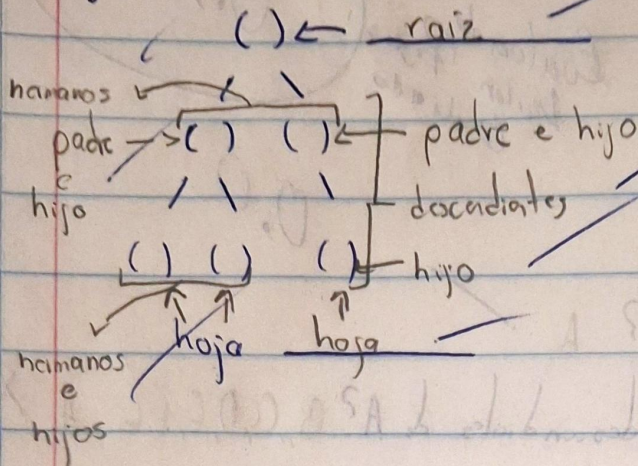 ( ) ← raiz
hamanos
padre → ( ) ( ) ← padre e hijo
e
hijo
descadiates
( ) ( ) ( ) ← hijo
hoja hoja
hamanos
e
hijos